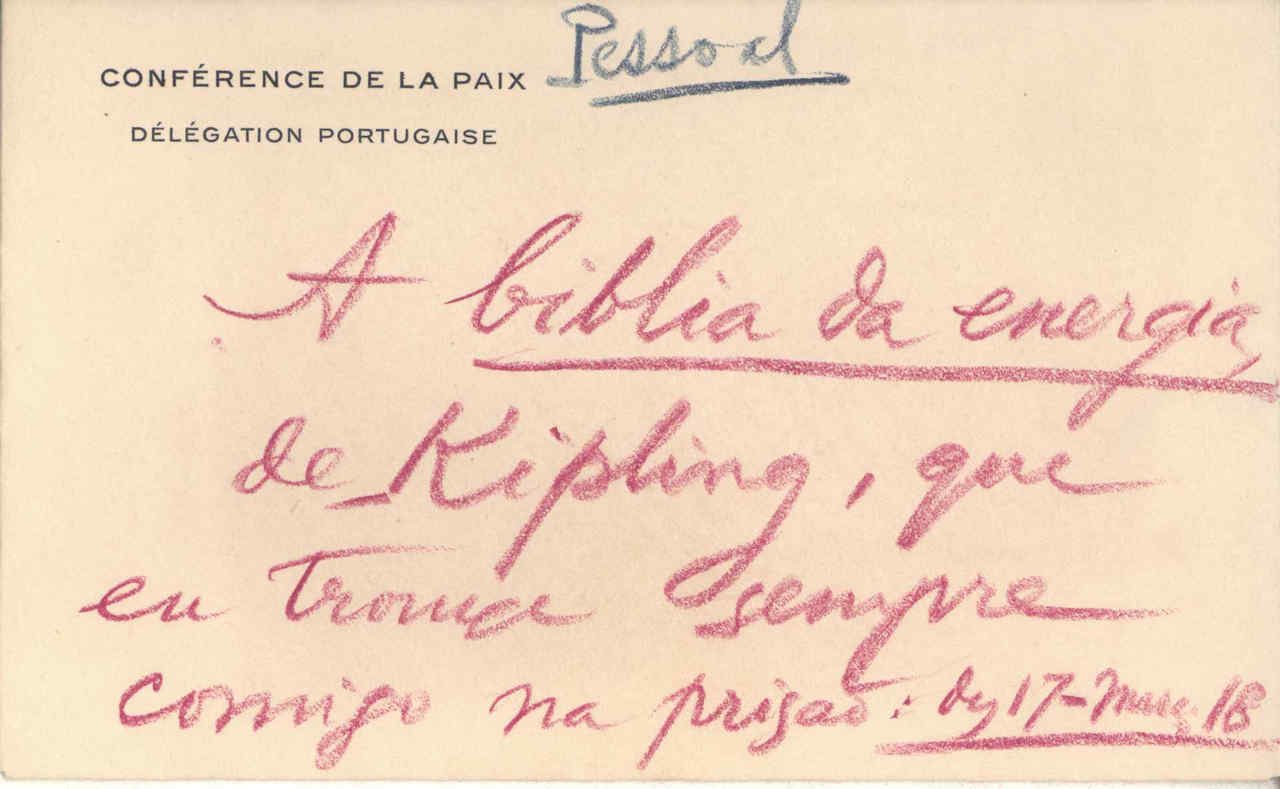 Pessoal
CONFÉRENCE DE LA PAIX
DÉLÉGATION PORTUGAISE
A biblia da energia,
de Kipling, que
eu trouxe sempre
comigo na prisão: 17- 18